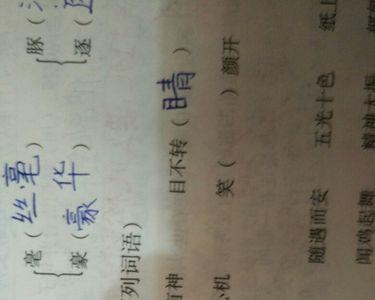 毫（丝毫） 豚（
豪（豪华） 逐（
列词语）
神 目不转（睛）
机 笑（ ）颜开
随遇而安 五光十色 纸上
闻鸡起舞 精神大振